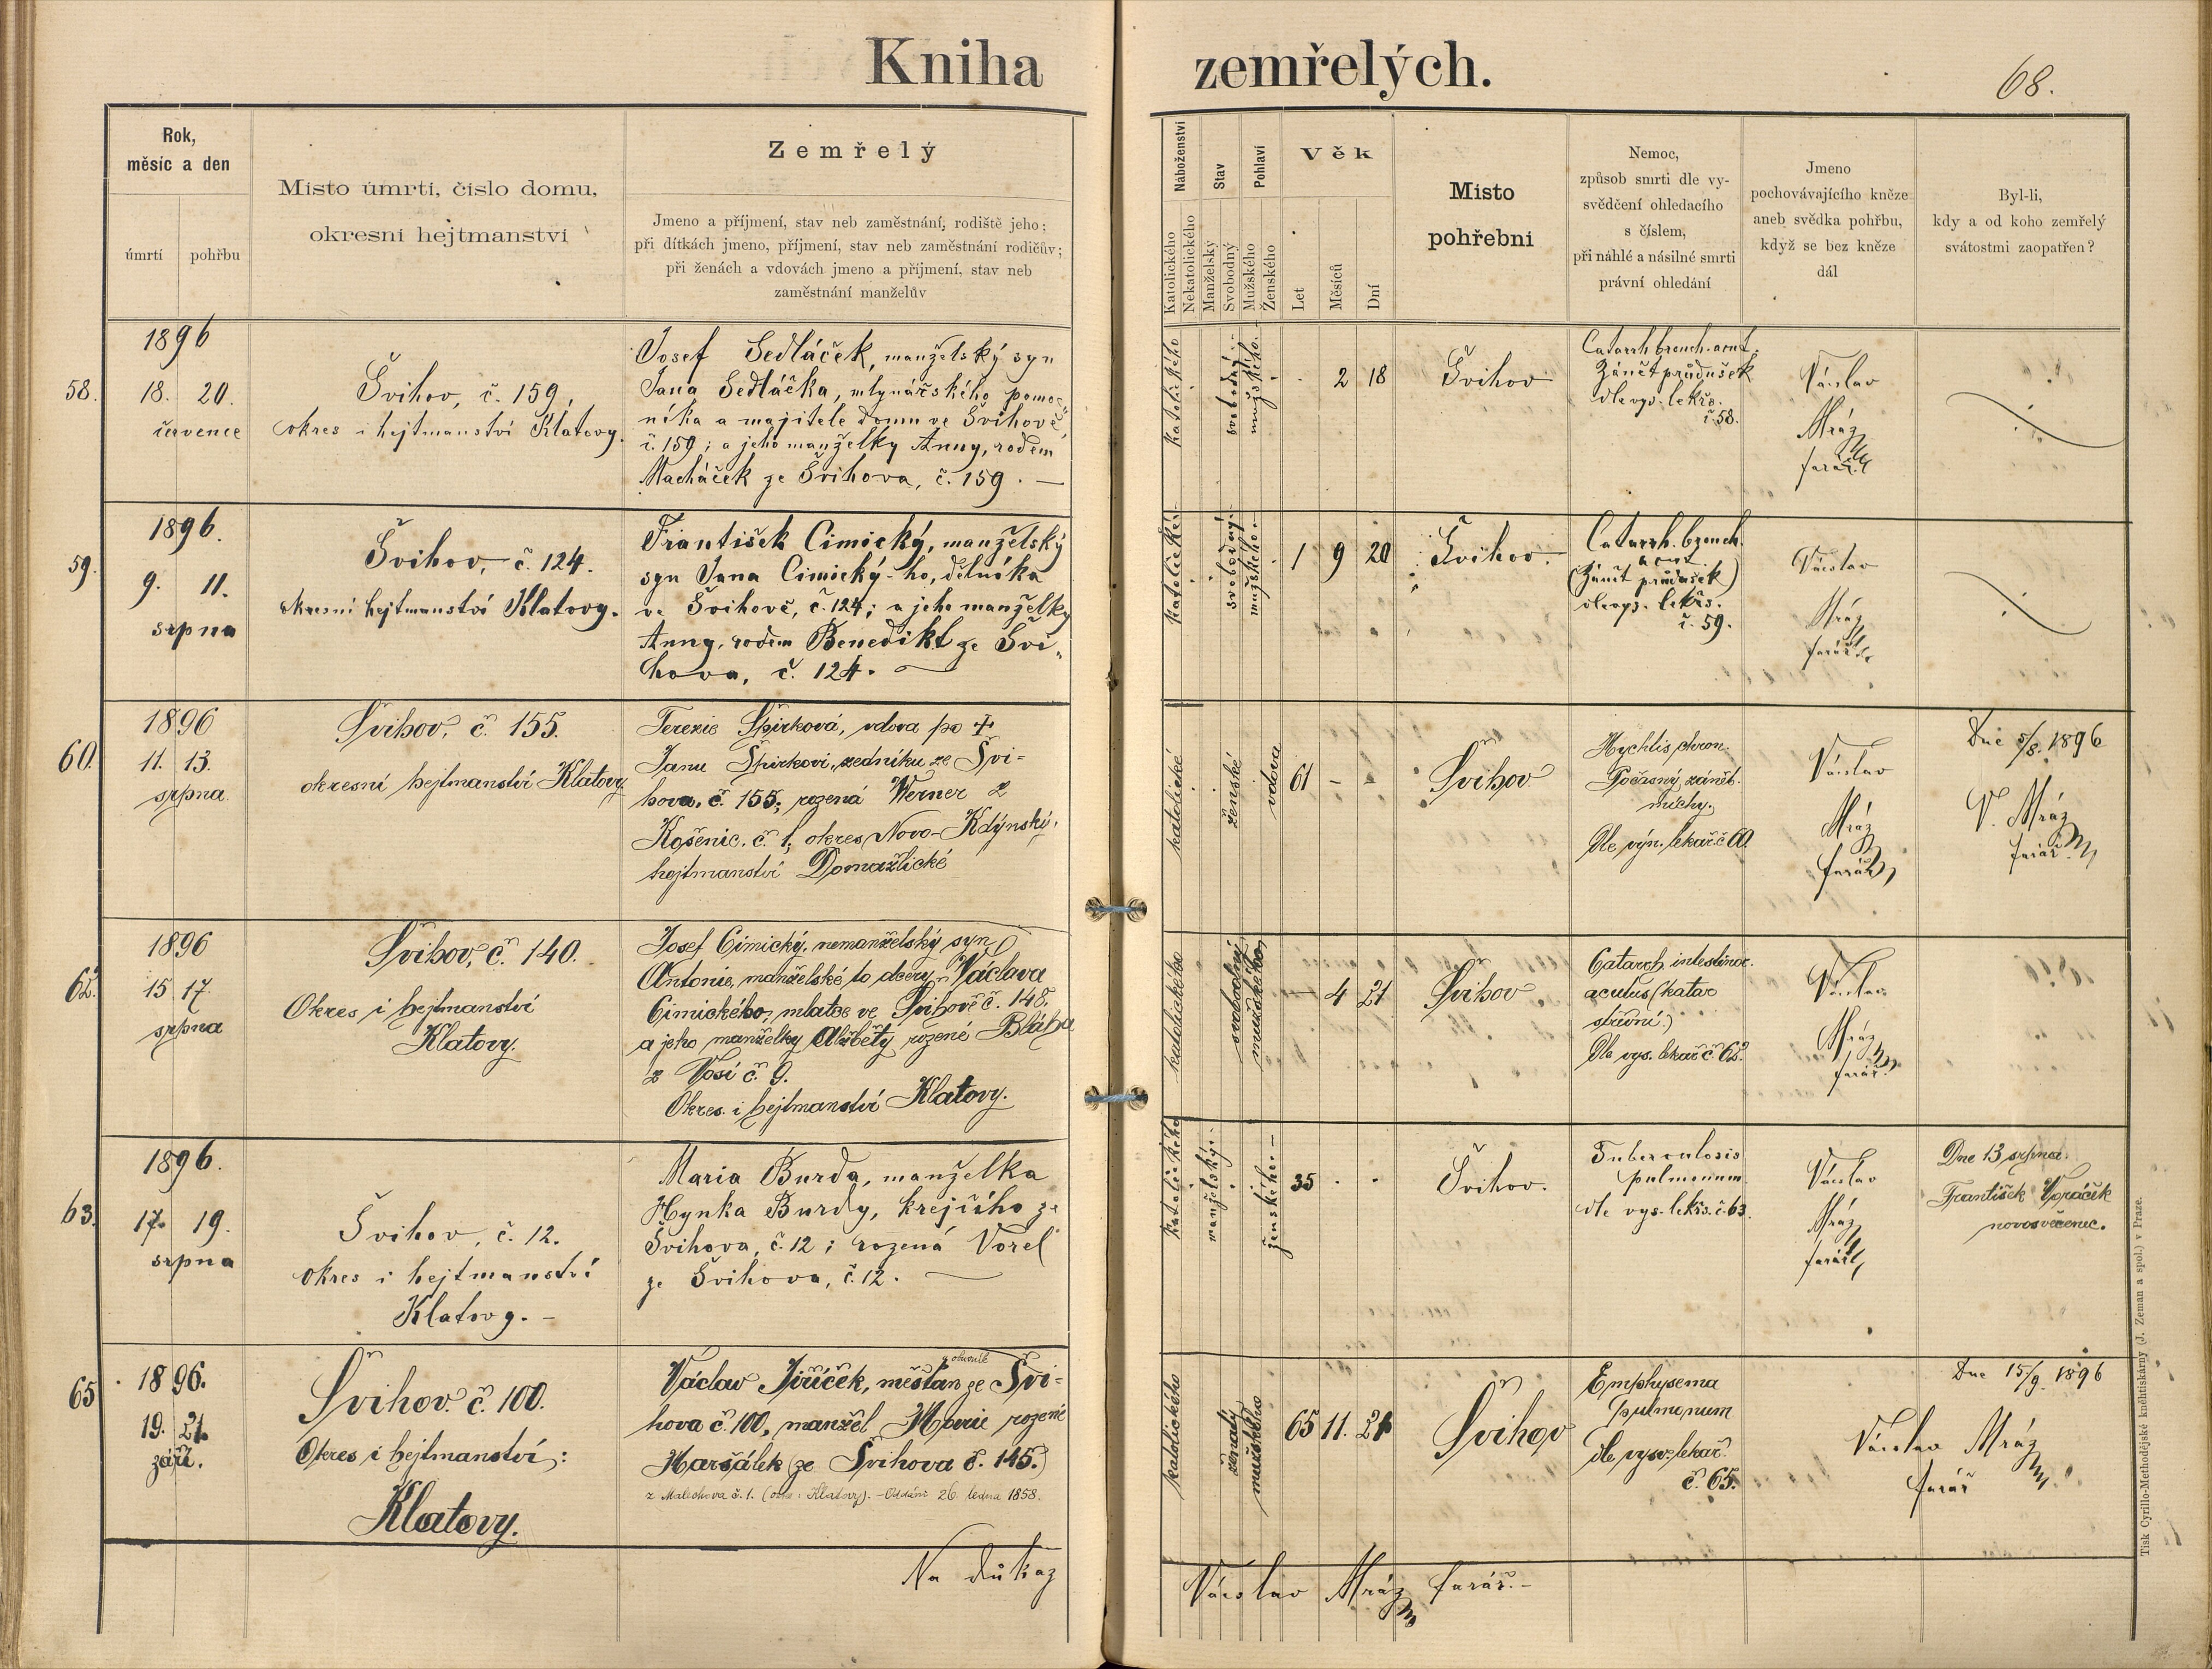 Kniha zemřelých.
68.
Rok,
měsíc a den
úmrtí
pohřbu
Místo úmrtí, číslo domu,
okresní hejtmanství
Zemřelý
Jmeno a příjmení, stav neb zaměstnání, rodiště jeho;
při dítkách jmeno, příjmení, stav neb zaměstnání rodičův;
při ženách a vdovách jmeno a příjmení, stav neb
zaměstnání manželův
Náboženství
Katolického
Nekatolického
Stav
Manželský
Svobodný
Pohlaví
Mužského
Ženského
Věk
Let
Měsíců
Dní
Místo
pohřební
Nemoc,
způsob smrti dle vy-
svědčení ohledacího
s číslem,
při náhlé a násilné smrti
právní ohledání
Jmeno
pochovávajícího kněze
aneb svědka pohřbu,
když se bez kněze
dál
Byl-li,
kdy a od koho zemřelý
svátostmi zaopatřen?
58.
1896
18. 20.
července
Švihov, č. 159,
okres i hejtmanství Klatovy.
Josef Sedláček, manželský syn
Jana Sedláčka, mlynářského pomoc-
níka a majitele domu ve Švihově,
č. 159; a jeho manželky Anny, rodem
Macháček ze Švihova, č. 159. —
katolického
svobodný
mužského.
2 18
Švihov
Catarrh bronch. acut.
Zánět průdušek
dle vys. lekřs.
č. 58.
Václav
Mráz
farář
59.
1896.
9. 11.
srpna
Švihov, č. 124.
okresní hejtmanství Klatovy.
František Cimický, manželský
syn Jana Cimický-ho, dělníka
ve Švihově, č. 124; a jeho manželky
Anny, rodem Benedikt ze Švi-
hova, č. 124.
katolické.
svobodný.
mužského.
1 9 20
Švihov.
Catarrh. bronch.
acut.
(Zánět průdušek)
dle vys. lekřs.
č. 59.
Václav
Mráz
farář
60.
1896
11. 13.
srpna
Švihov, č. 155.
okresní hejtmanství Klatovy
Terezie Špirková, vdova po +
Janu Špirkovi, zedníku ze Švi-
hova, č. 155; rozená Werner z
Košenic, č. 1, okres Novo-Kdýnský,
hejtmanství Domažlické
katolické
ženské
vdova
61 - -
Švihov
chron.
zánět.
míchy.
lekař. č 60.
Václav
Mráz
farář
Dne 5/8. 1896
V. Mráz
farář
62.
1896
15 17
srpna
Švihov, č. 140.
Okres i hejtmanství
Klatovy.
Josef Cimický, nemanželský syn
Antonie, manželské to dcery Václava
Cimického, mlatce ve Švihově č. 148.
a jeho manželky Alžběty rozené Bláha
z Vosí č. 9.
Okres i hejtmanství Klatovy.
katolického
svobodný
mužského
— 4 21
Švihov
Catarrh. intestinor.
acutus (katar
střevní.)
Dle vys. lekař. č. 62.
Václav
Mráz
farář
63.
1896.
17. 19.
srpna
Švihov, č. 12.
okres i hejtmanství
Klatovy. -
Maria Burda, manželka
Hynka Burdy, krejčího ze
Švihova, č. 12; rozená Vorel
ze Švihova, č. 12. —
katolického
manželský.
ženského. -
35
Švihov.
Tuberculosis
pulmonum
dle vys. lekřs. č. 63.
Václav
Mráz
farář
Dne 13 srpna.
František Voráček
novosvěcenec.
65
1896.
19. 21.
září.
Švihov č. 100.
Okres i hejtmanství:
Klatovy.
Václav Jiříček, měšťan ze Švi-
hova č. 100, manžel Marie rozené
Maršálek (ze Švihova č. 145.)
z Malechova č. 1. (okres Klatovy). - Oddáni 26. ledna 1858.
katolického
ženatý
mužského
65 11. 21
Švihov
Emphysema
pulmonum
dle vysv. lekař.
č. 65.
Dne 15/9. 1896
Václav Mráz
farář
Na důkaz
Václav Mráz farář. -
Tisk Cyrillo-Methodějské knihtiskárny (J. Zeman a spol.) v Praze.